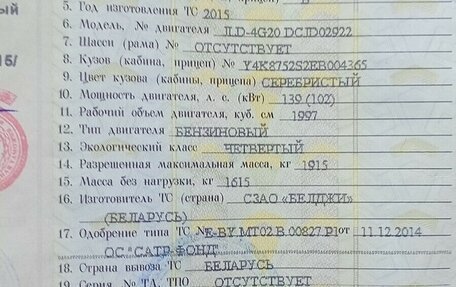 5. Год изготовления ТС 2015
6. Модель, № двигателя JLD-4G20 DCJD02922
7. Шасси (рама) № ОТСУТСТВУЕТ
8. Кузов (кабина, прицеп) № Y4K8752S2EB004365
9. Цвет кузова (кабины, прицепа) СЕРЕБРИСТЫЙ
10. Мощность двигателя, л. с. (кВт) 139 (102)
11. Рабочий объем двигателя, куб. см 1997
12. Тип двигателя БЕНЗИНОВЫЙ
13. Экологический класс ЧЕТВЕРТЫЙ
14. Разрешенная максимальная масса, кг 1915
15. Масса без нагрузки, кг 1615
16. Изготовитель ТС (страна) СЗАО «БЕЛДЖИ»
(БЕЛАРУСЬ)
17. Одобрение типа ТС № E-BY.MT02.B.00827.P1 от 11.12.2014
ОС "САТР-ФОНД"
18. Страна вывоза ТС БЕЛАРУСЬ
19. Серия, № ТД, ТПО ОТСУТСТВУЕТ